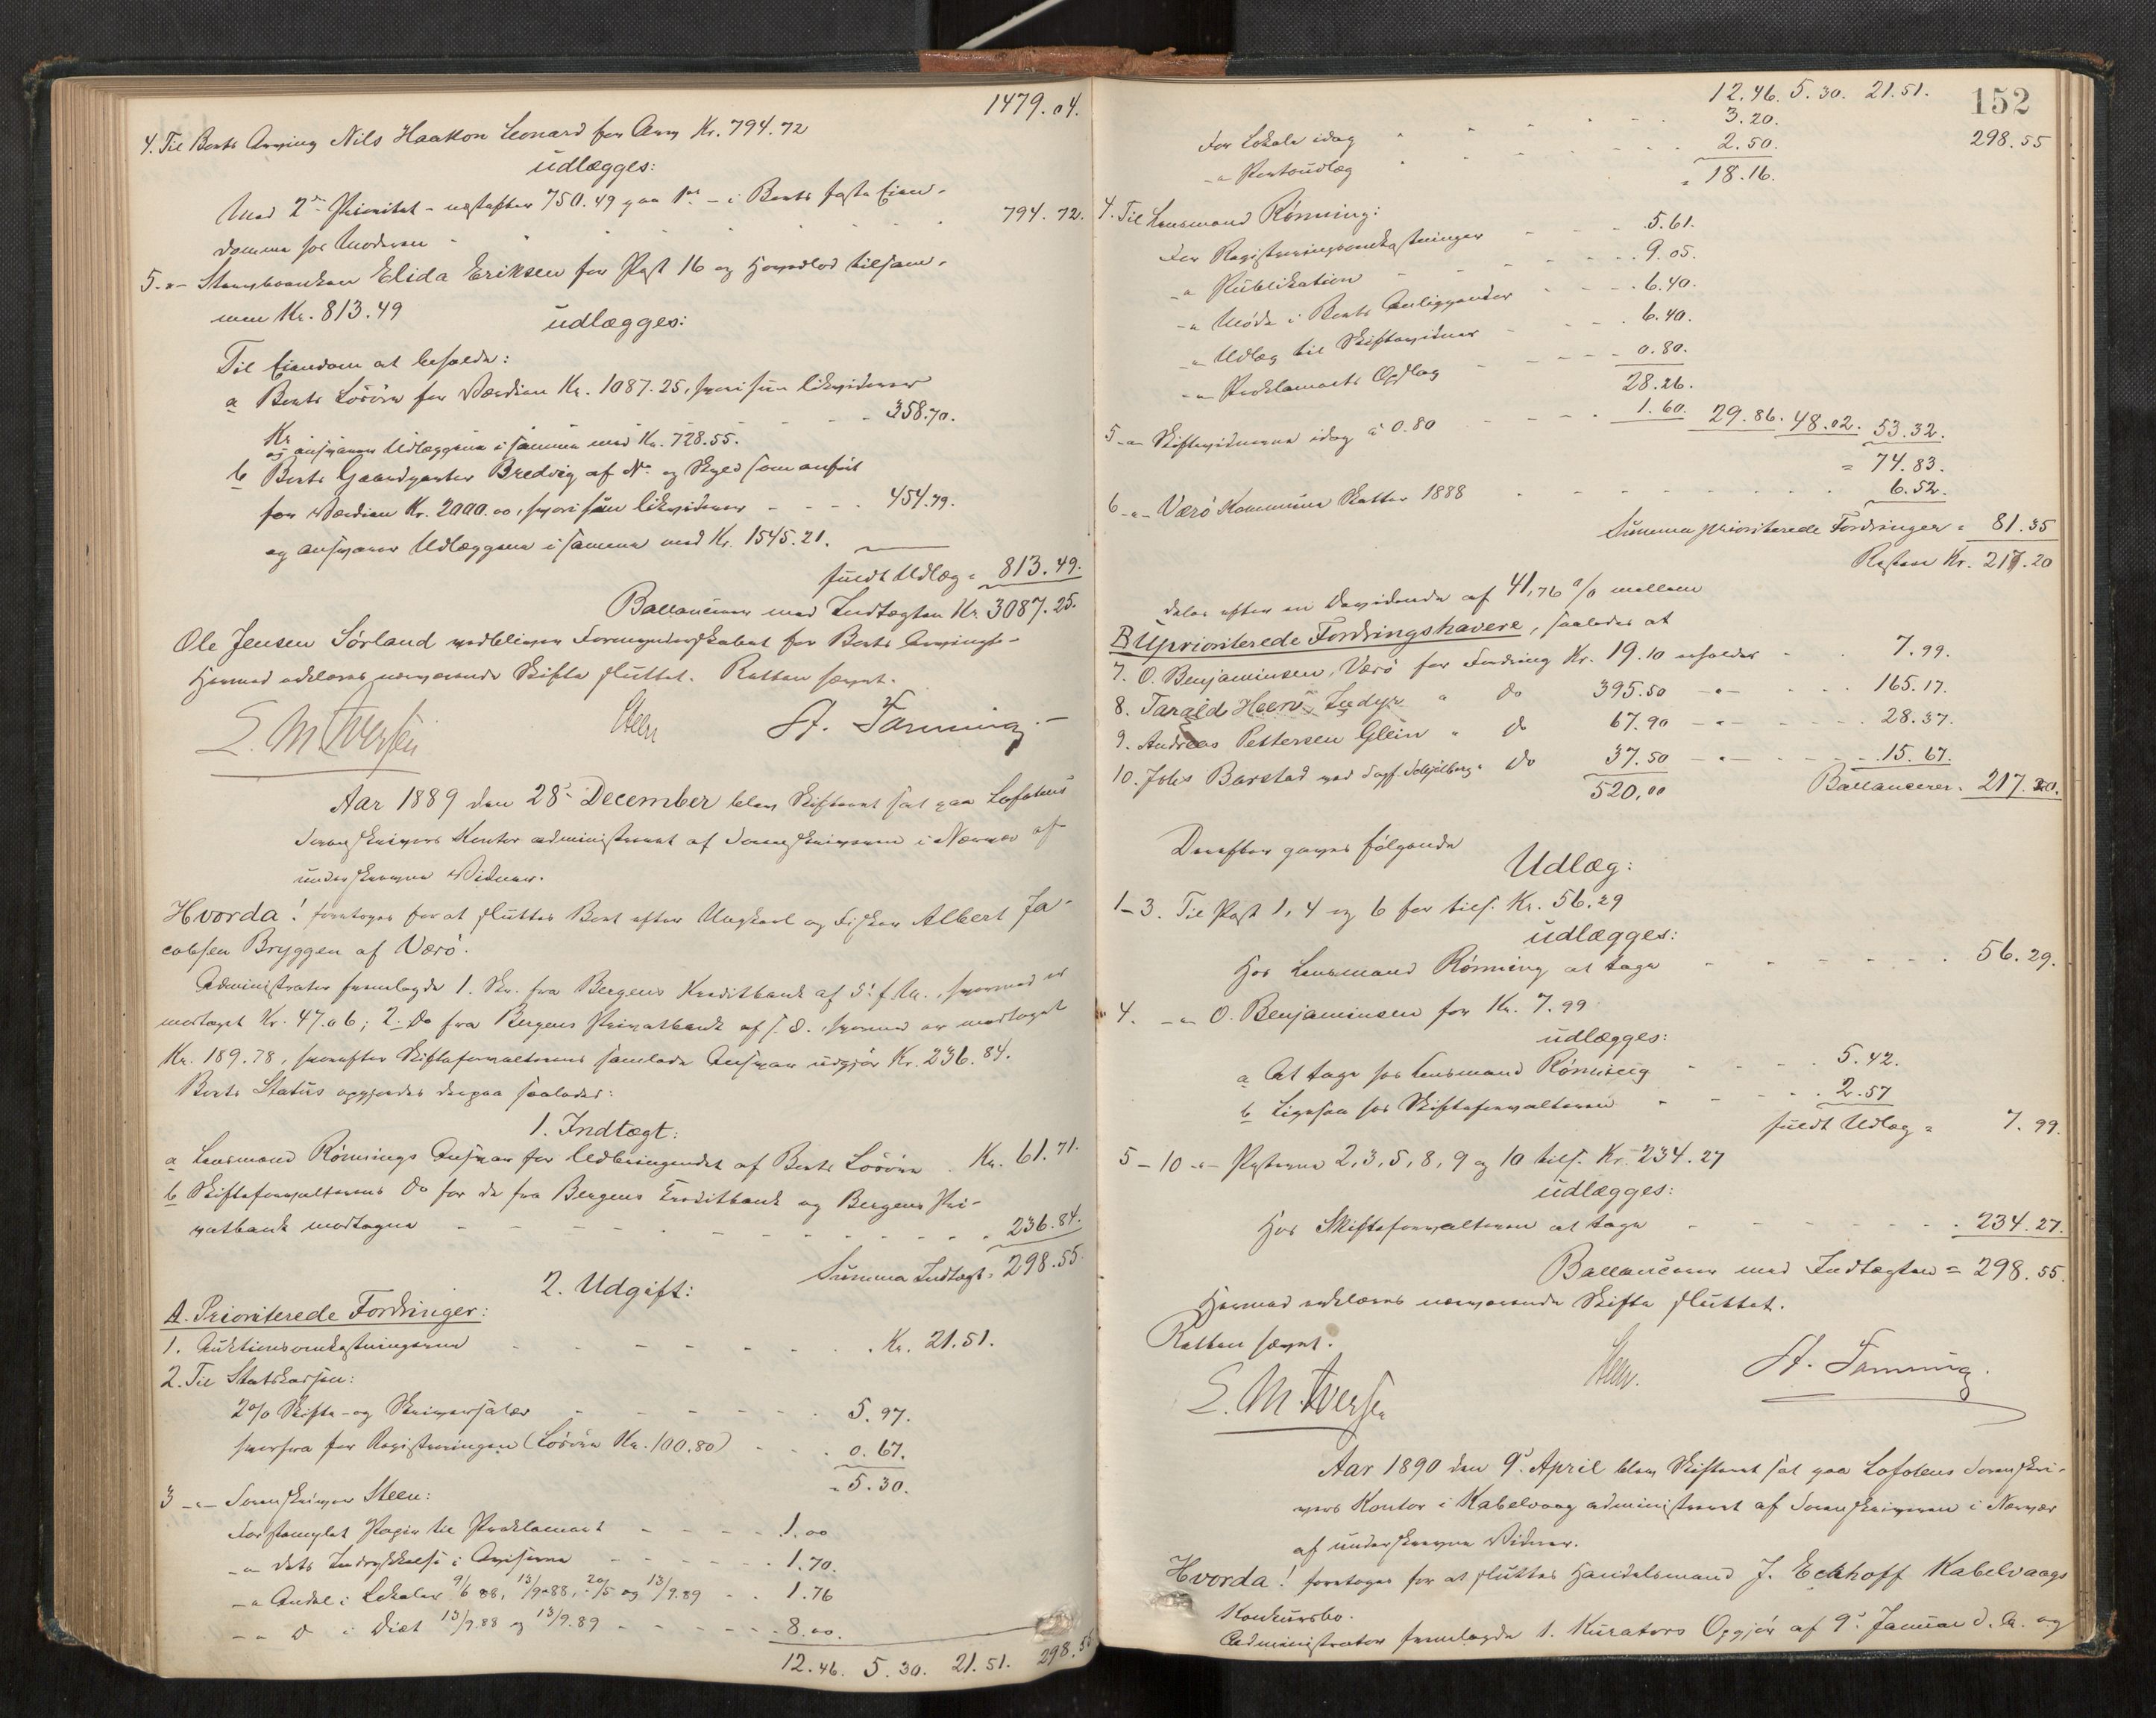 1479.04.
4. Til Boets Arving Nils Haakon Leonard for Arv Kr. 794.72
udlægges:
Med 2den Prioritet - næstefter 750.49 paa 1ste - i Boets faste Eien-
domme hos Moderen - - - - - 794.72.
5. -"- Stervboenken Elida Eriksen for Post 16 og Hovedlod tilsam-
men Kr. 813.49
udlægges:
Til Eiendom at beholde:
a Boets Løsøre for Værdien Kr. 1087.25, hvori hun likviderer
Kr. - - 358.70.
og ansvarer Udlæggene i samme med Kr. 728.55.
b Boets Gaardparter Bredvig af No. og Skyld som anført
for Værdien Kr. 2000.00, hvori hun likviderer - - - - 454.79.
og ansvarer Udlæggene i samme med Kr. 1545.21.
fuldt Udlæg = 813.49.
Ballancerer med Indtægten Kr. 3087.25.
Ole Jensen Sørland vedbliver Formynderskabet for Boets Arving.
Hermed erklæres nærværende Skifte sluttet. Retten hævet.
E. M. Iversen Steen A. Tanning
Aar 1889 den 28de December blev Skifteret sat paa Lofotens
Sorenskrivers Kontor administreret af Sorenskriveren i Nærvær af
underskrevne Vidner.
Hvorda! foretoges for at sluttes Boet efter Ungkarl og Fisker Albert Ja-
cobsen Bryggen af Værø.
Administrator fremlagde 1. Skr. fra Bergens Kreditbank af 5. f. M., hvormed er
modtaget Kr. 47.06; 2. Do fra Bergens Privatbank af s. D. hvormed er modtaget
Kr. 189.78, hvorefter Skifteforvalterens samlede Ansvar udgjør Kr. 236.84.
Boets Status opgjordes derpaa saaledes:
1. Indtægt:
a Lensmand Rønnings Ansvar for Udbringendet af Boets Løsøre . Kr. 61.71.
b Skifteforvalterens Do for de fra Bergens Kreditbank og Bergens Pri-
vatbank modtagne - - - - - - - 236.84.
Summa Indtægt = 298.55
2. Udgift:
A. Prioriterede Fordringer:
1. Auktionsomkostningerne - - - - - - Kr. 21.51.
2. Til Statskassen:
2% Skifte- og Skriversalær - - - - - 5.97.
herfra for Registreringen (Løsøre Kr. 100.80) - - 0.67.
= 5.30.
3 -"- Sorenskriver Steen:
For stemplet Papir til Proklamaet - - - - 1.00
-"- dets Indrykkelse i Aviserne - - - - 1.70.
-"- Andel i Lokaler 9/6 88, 13/9 88, 20/5 og 13/9.89 - - 1.76
-"- D i Diæt 13/9.88 og 13/9.89 - - - - 8.00.
12.46. 5.30. 21.51. 298.55
152
12.46. 5.30. 21.51.
298.55
For Lokale idag - - - - - 3.20.
-"- Portoudlæg - - - - - 2.50.
= 18.16.
4. Til Lensmand Rønning:
For Registreringsomkostninger - - - 5.61.
-"- Publikation - - - - - 9.05.
-"- Møde i Boets Anliggender - - - 6.40.
-"- Udlæg til Skiftevidner - - - 6.40.
-"- Proklamaets Opslag - - - - 0.80.
28.26.
5 -"- Skiftevidnerne idag à 0.80 - - - - 1.60. 29.86. 48.02. 53.32.
= 74.83.
6 -"- Værø Kommune Skatter 1888 - - - - - 6.52.
Summa prioriterede Fordringer = 81.35
Resten Kr. 217.20
deles efter en Dividende af 41,76 % mellem
B Uprioriterede Fordringshavere, saaledes at
7. O. Benjaminsen, Værø for Fordring Kr. 19.10 erholder - - 7.99.
8. Tarald Heen, Indyr " do 395.50 -"- - - - 165.17.
9. Andreas Pettersen Glein " do 67.90 -"- - - - 28.37.
10. Johs Barstad ved Sagf. Schjelberg " Do 37.50 -"- - - - 15.67.
520,00 Ballancerer. 217.20.
Derefter gaves følgende
Udlæg:
1-3. Til Post 1, 4 og 6 for tils. Kr. 56.29
udlægges:
Hos Lensmand Rønning at tage - - - - - - 56.29.
4. -"- O. Benjaminsen for Kr. 7.99
udlægges:
a At tage hos Lensmand Rønning - - - - 5.42.
b Ligesaa hos Skifteforvalteren - - - - 2.57
fuldt Udlæg = 7.99.
5-10 -"- Posterne 2, 3, 5, 8, 9 og 10 tils. Kr. 234.27
udlægges:
Hos Skifteforvalteren at tage - - - - - - 234.27.
Ballancerer med Indtægten = 298.55.
Hermed erklæres nærværende Skifte sluttet.
Retten hævet.
E. M. Iversen Steen. A. Tanning.
Aar 1890 den 9de April blev Skifteret sat paa Lofotens Sorenskri-
vers Kontor i Kabelvaag administreret af Sorenskriveren i Nærvær
af underskrevne Vidner.
Hvorda! foretoges for at sluttes Handelsmand J. Eckhoff Kabelvaags
Konkursbo.
Administrator fremlagde 1. Kurators Opgjør af 9de Januar d. A. og